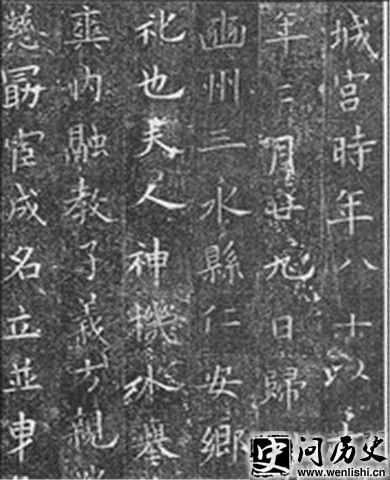 城宮時年八十以
年二月廿九日歸
豳州三水縣仁安鄉
礼也夫人神機外舉
爽内融教子義方親
慈勗宦成名立並申
史问历史
www.wenlishi.cn